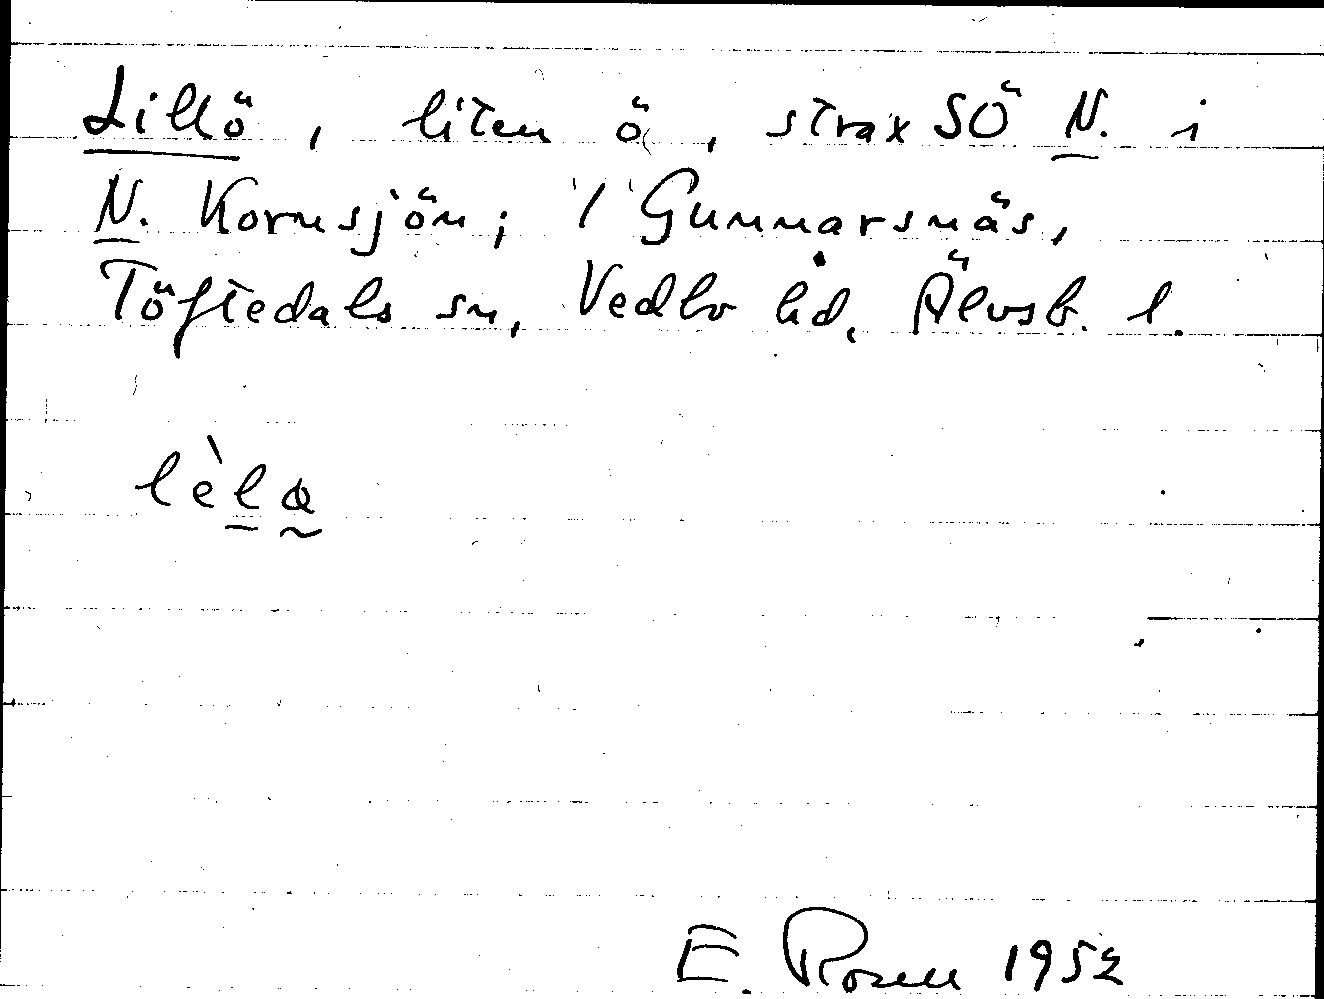 Lillö, liten ö, strax SÖ N. i
N. Kornsjön; 1 Gunnarsnäs,
Töftedals sn, Vedbo hd, Älvsb. l.
lèlɑ
E. Rosell 1952